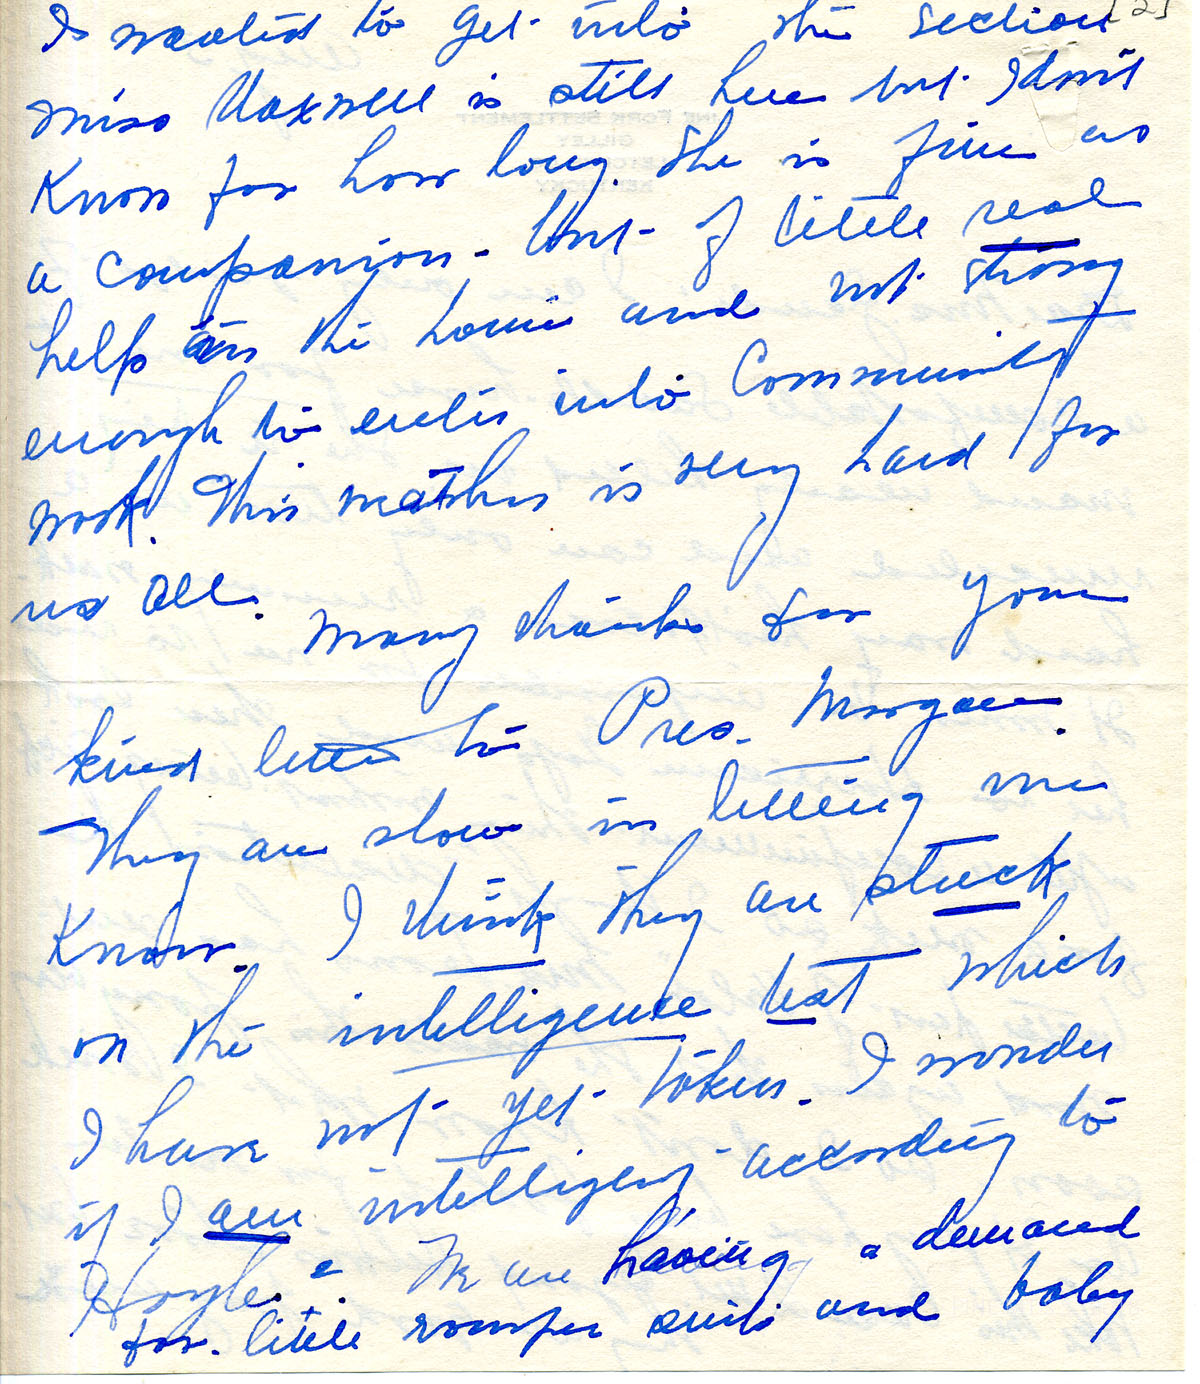 [2]
I wanted to get into the section
Miss Maxwell is still here but I don't
Know for how long. She is fine as
a companion - but of little real
help in the house and not strong
enough to enter into Community
work. This weather is very hard for
us all.
Many thanks for your
kind letter to Pres. Morgan.
They are slow in letting me
Know. I think they are stuck
on the intelligence test which
I have not yet taken. I wonder
if I am intelligent according to
Hoyle. We are having a demand
for little romper suits and baby
LINE FORK SETTLEMENT
GILLEY
LETCHER
KENTUCKY